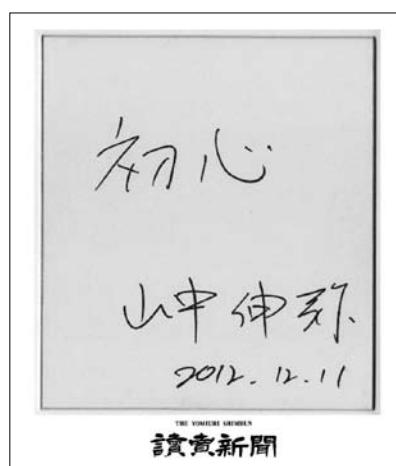 初心
山中伸弥
2012.12.11
THE YOMIURI SHIMBUN
讀賣新聞